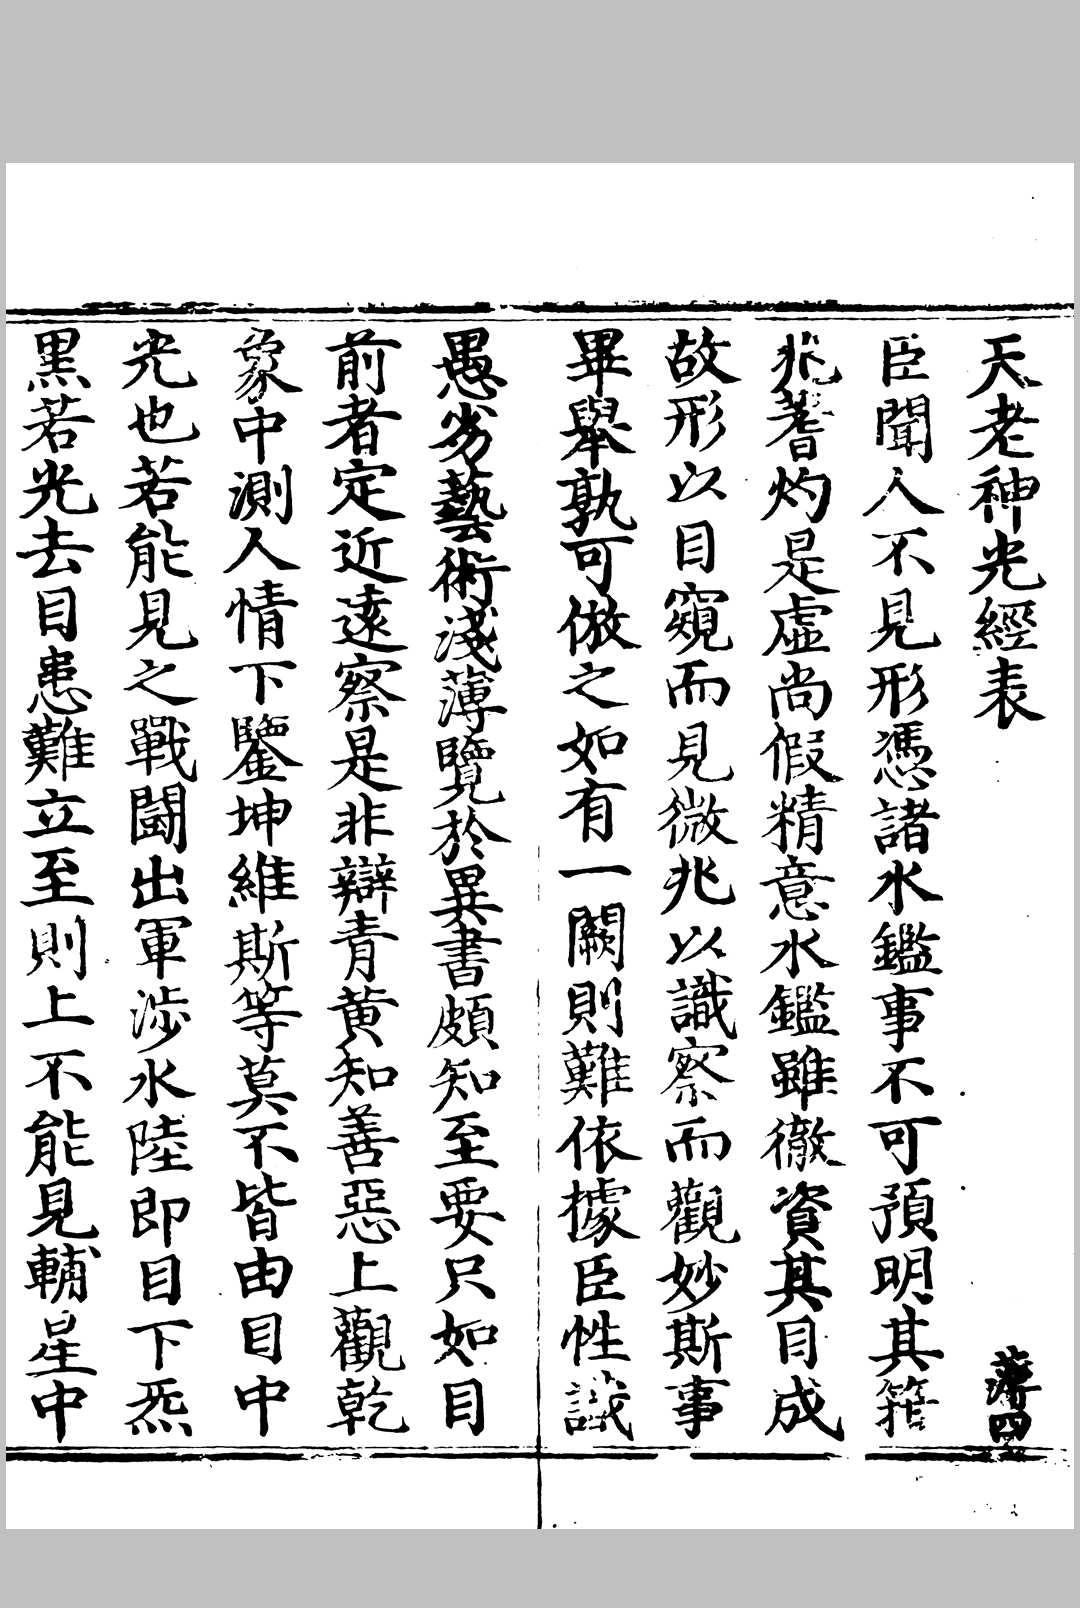 天老神光經表 薄四
臣聞人不見形憑諸水鑑事不可預明其䇶
兆蓍灼是虛尚假精意水鑑雖徹資其目成
故形以目窺而見微兆以識察而觀妙斯事
畢舉孰可倣之如有一闕則難依據臣性識
愚劣藝術淺薄覽於異書頗知至要只如目
前者定近遠察是非辯青黃知善惡上觀乾
象中測人情下鑒坤維斯等莫不皆由目中
光也若能見之戰鬪出軍涉水陸即目下炁
黑若光去目患難立至則上不能見輔星中